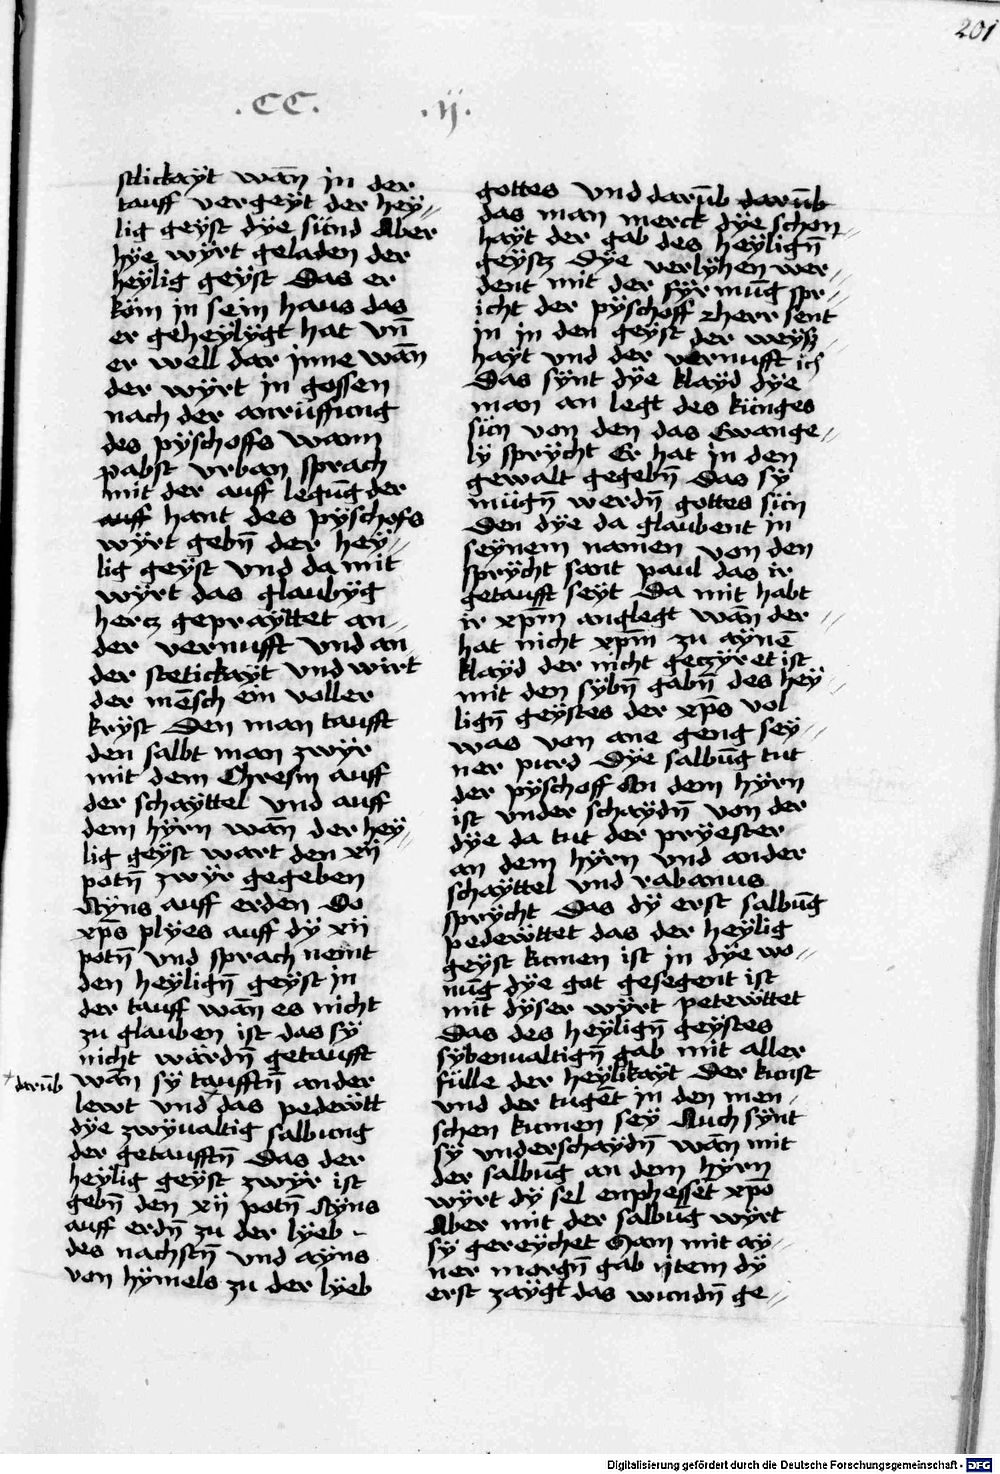 201
.CC. .ij.
stlickayt wan̄ in der
tauff vergeyt der hey„
lig geÿst dÿe sünd Aber
hÿe wÿrt geladen der
heÿlig geÿst Das er
köm in sein haus das
er geheÿlÿgt hat vn̄
er well dar jnne wān
der wÿrt in gossen
nach der anrüffung
des pÿschoffs wann
pabst vrban sprach
mit der auff legūg der
auff hant des pÿschofs
wÿrt gebn̄ der hey„
lig geÿst vnd da mit
wÿrt das glaubÿg
hercz geprayttet an„
der vernufft vnd an
der stetickayt vnd wirt
der mēsch ein voller
krÿst Den man taufft
den salbt man zwÿr
mit dem Chresm auff
der schayttel vnd auff
dem hÿrn wān der heÿ„
lig geÿst wart den xij
potn̄ zwÿr gegeben
Aÿns auff erden Do
xp̄s plÿes auff dÿ xij
potn̄ vnd sprach nemt
den heÿlign̄ geÿst in
der tauff wān es nicht
zu glauben ist das sÿ
nicht wärdn̄ getaufft
+ darūb
wān sÿ taufftn̄ ander
lewt vnd das pedewtt
dÿe zwÿualtig salbung
der getaufftn̄ Das der
heÿlig geÿst zwÿr ist
gebn̄ den xij potn̄ Aÿns
auff erdn̄ zu der lÿeb
des nachstn̄ vnd aÿns
von hÿmels zu der lÿeb
gottes vnd darūb darūb
das man merck dÿe schon„
haÿt der gab des heÿlign̄
geÿstz Dÿe verlÿhen wer„
dent mit der sÿrmūg spr„
icht der pÿschoff zherr sent
in in den geÿst der weÿß„
haÿt vnd der vernufft ich
Das sÿnt dÿe klaÿd dÿe
man an legt des künges
sün von den das Ewange„
lÿ sprÿcht Er hat in den
gewalt gegebn̄ Das sÿ
mügn̄ werdn̄ gottes sün
Den dÿe da glaubent in
seÿnem namen von den
sprÿcht sant paul das ir
getaufft seÿt Da mit habt
ir xp̄m anglegt wān der„
hat nicht xp̄m zu aÿnē
klaÿd der nicht geczÿret ist
mit den sÿbn̄ gabn̄ des heÿ„
lign̄ geÿstes der xp̄s vol
was von ane geng seÿ„
ner purd Dÿe salbūg tut
der pÿschoff An dem hÿrn
ist vnder schaÿdn̄ von der
dÿe da tut der prÿester
an dem hÿrn vnd ander
schaÿttel vnd rabanus
sprÿcht Das dÿ erst salbūg
pedewttet das der heÿlig
geÿst kumen ist in dÿe wo„
nūg dÿe got gesegent ist
mit dÿser wÿrt petewttet
Das des heÿlign̄ geÿstes
sÿbenualtign̄ gab mit aller
fülle der heÿlikaÿt Der kunst
vnd der tugēt in den men„
schen kumen seÿ Auch sÿnt
sÿ vnderschaÿdn̄ wān mit
der salbūg an dem hÿrn
wÿrt dÿ sel enphesset xp̄o
Aber mit der salbūg wÿrt
sÿ gereÿchet Gan mit aÿ„
ner morgn̄ gab ijtem dÿ
erst zaÿgt das wundn̄ ge„
Digitalisierung gefördert durch die Deutsche Forschungsgemeinschaft - DFG